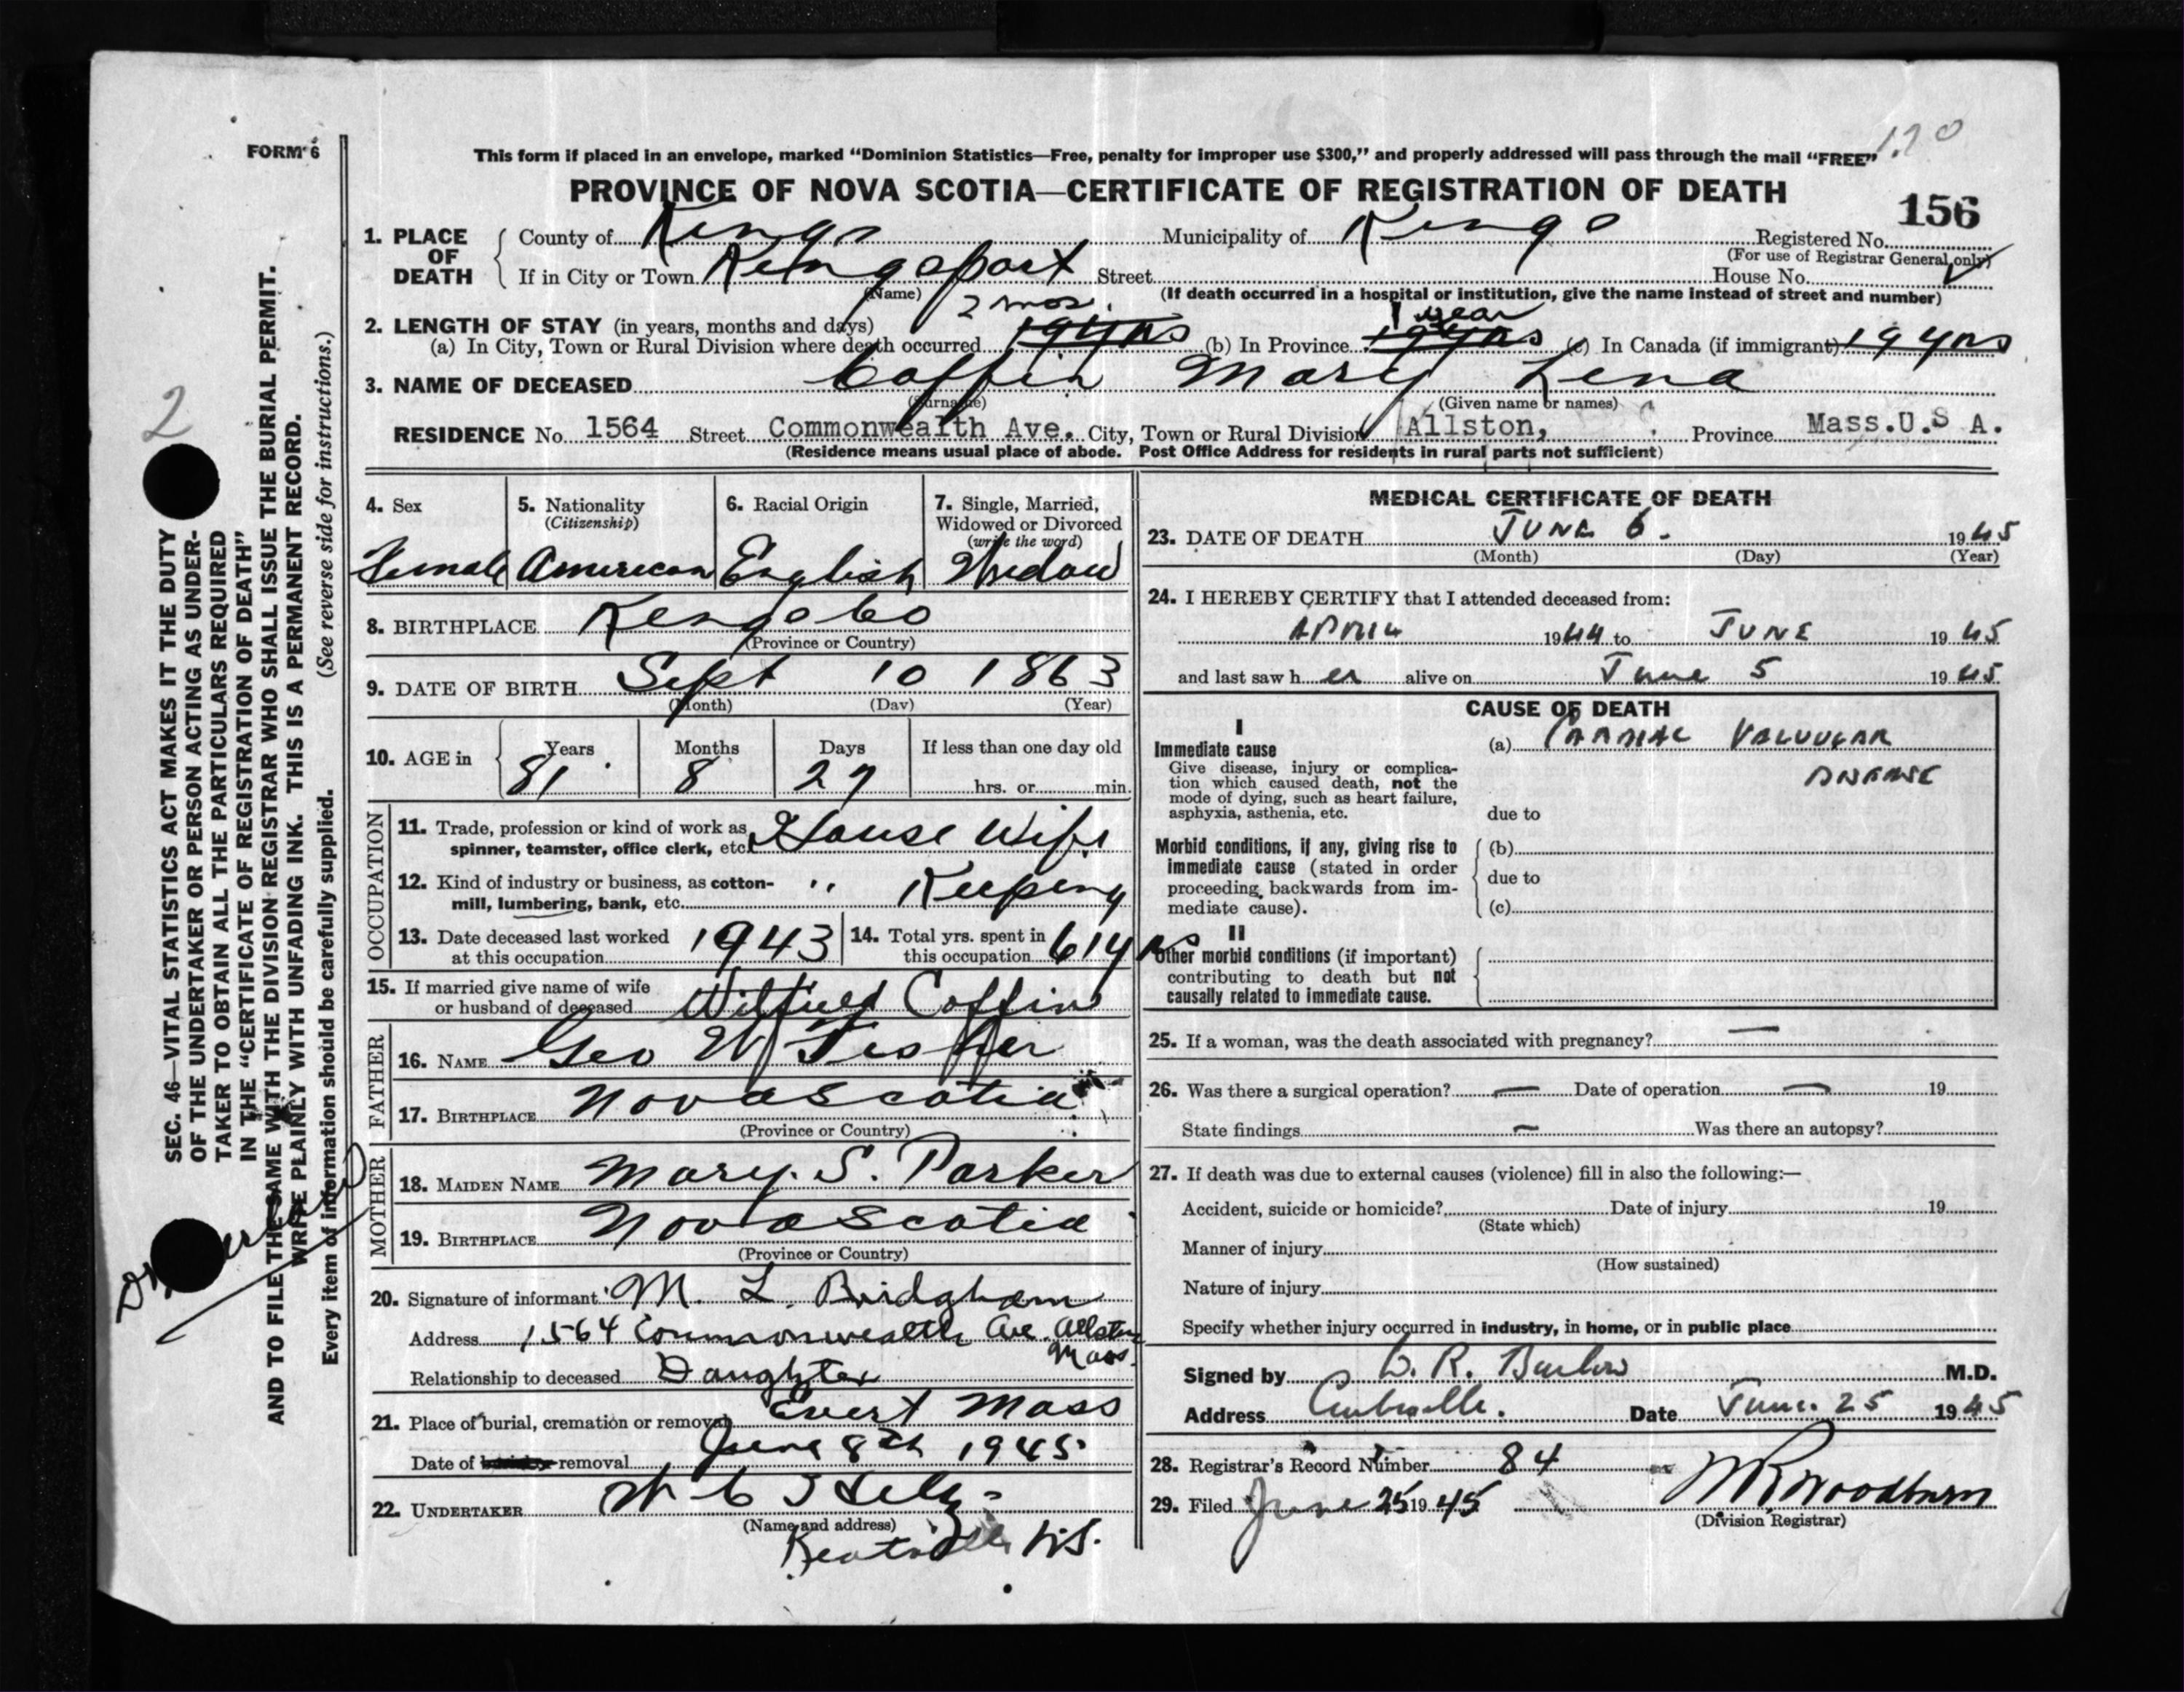 FORM 6
This form if placed in an envelope, marked “Dominion Statistics—Free, penalty for improper use $300,” and properly addressed will pass through the mail “FREE”
120
PROVINCE OF NOVA SCOTIA—CERTIFICATE OF REGISTRATION OF DEATH
156
1. PLACE OF DEATH
County of Kings Municipality of Kings Registered No.
(For use of Registrar General only)
If in City or Town Kingsport Street House No.
(Name) (If death occurred in a hospital or institution, give the name instead of street and number)
2 mos. 1 year
2. LENGTH OF STAY (in years, months and days)
(a) In City, Town or Rural Division where death occurred 19 yrs (b) In Province 19 yrs (c) In Canada (if immigrant) 19 yrs
3. NAME OF DECEASED Coffin Mary Lena
(Surname) (Given name or names)
RESIDENCE No. 1564 Street Commonwealth Ave. City, Town or Rural Division Allston, Province Mass. U.S A.
(Residence means usual place of abode. Post Office Address for residents in rural parts not sufficient)
4. Sex 5. Nationality 6. Racial Origin 7. Single, Married,
(Citizenship) Widowed or Divorced
(write the word)
Female American English Widow
8. BIRTHPLACE Kings Co
(Province or Country)
9. DATE OF BIRTH Sept 10 1863
(Month) (Day) (Year)
10. AGE in Years Months Days If less than one day old
81 8 27 hrs. or min.
OCCUPATION
11. Trade, profession or kind of work as House Wife
spinner, teamster, office clerk, etc.
12. Kind of industry or business, as cotton- " Keeping
mill, lumbering, bank, etc.
13. Date deceased last worked 1943 14. Total yrs. spent in 61 yrs
at this occupation this occupation
15. If married give name of wife
or husband of deceased Wilfred Coffin
FATHER
16. NAME Geo W Fisher
17. BIRTHPLACE Nova Scotia
(Province or Country)
MOTHER
18. MAIDEN NAME Mary. S. Parker
19. BIRTHPLACE Nova Scotia
(Province or Country)
20. Signature of informant M. L. Bridgham
Address 1564 Commonwealth Ave. Allston
Mass.
Relationship to deceased Daughter
21. Place of burial, cremation or removal Evert Mass
Date of removal June 8th 1945
22. UNDERTAKER W C
(Name and address)
N.S.
MEDICAL CERTIFICATE OF DEATH
23. DATE OF DEATH JUNE 6. 1945
(Month) (Day) (Year)
24. I HEREBY CERTIFY that I attended deceased from:
APRIL 1944 to JUNE 1945
and last saw her alive on June 5 1945
CAUSE OF DEATH
I
Immediate cause
Give disease, injury or complica-
tion which caused death, not the
mode of dying, such as heart failure,
asphyxia, asthenia, etc.
(a) CARDIAC VALVULAR
DISEASE
due to
Morbid conditions, if any, giving rise to
immediate cause (stated in order
proceeding backwards from im-
mediate cause).
(b)
due to
(c)
II
Other morbid conditions (if important)
contributing to death but not
causally related to immediate cause.
25. If a woman, was the death associated with pregnancy? —
26. Was there a surgical operation? — Date of operation — 19
State findings — Was there an autopsy?
27. If death was due to external causes (violence) fill in also the following:—
Accident, suicide or homicide? Date of injury 19
(State which)
Manner of injury
(How sustained)
Nature of injury
Specify whether injury occurred in industry, in home, or in public place
Signed by R. Burlow M.D.
Address Date June. 25 1945
28. Registrar's Record Number 84
29. Filed June 25 1945
(Division Registrar)
2
SEC. 46—VITAL STATISTICS ACT MAKES IT THE DUTY
OF THE UNDERTAKER OR PERSON ACTING AS UNDER-
TAKER TO OBTAIN ALL THE PARTICULARS REQUIRED
IN THE “CERTIFICATE OF REGISTRATION OF DEATH”
AND TO FILE THE SAME WITH THE DIVISION REGISTRAR WHO SHALL ISSUE THE BURIAL PERMIT.
WRITE PLAINLY WITH UNFADING INK. THIS IS A PERMANENT RECORD.
Every item of information should be carefully supplied. (See reverse side for instructions.)